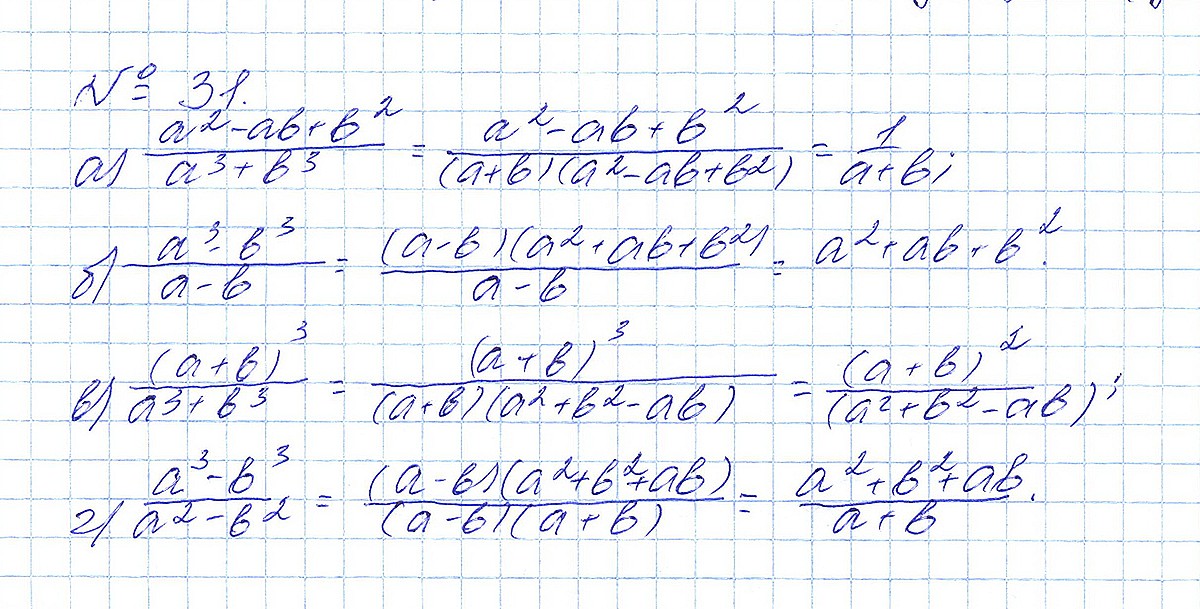 № 31.
а) (a² - ab + b²)/(a³ + b³) = (a² - ab + b²)/((a+b)(a² - ab + b²)) = 1/(a+b);
б) (a³ - b³)/(a - b) = ((a-b)(a² + ab + b²))/(a - b) = a² + ab + b².
в) (a+b)³/(a³ + b³) = (a+b)³/((a+b)(a² + b² - ab)) = (a+b)²/(a² + b² - ab);
г) (a³ - b³)/(a² - b²) = ((a-b)(a² + b² + ab))/((a-b)(a+b)) = (a² + b² + ab)/(a+b).